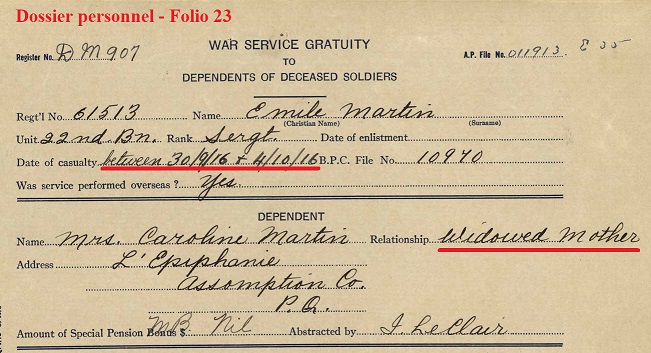 Dossier personnel - Folio 23
WAR SERVICE GRATUITY
TO
DEPENDENTS OF DECEASED SOLDIERS
Register No. DM907
A.P. File No. 011913. E 35
Regt'l No 61513 Name Emile Martin
(Christian Name) (Surname)
Unit 22nd Bn. Rank Sergt. Date of enlistment
Date of casualty between 30/9/16 + 4/10/16 B.P.C. File No. 10970
Was service performed overseas? Yes
DEPENDENT
Name Mrs. Caroline Martin Relationship Widowed Mother
Address L'Epiphanie
Assomption Co.
P.Q.
Amount of Special Pension Bonus $ Nil Abstracted by J. LeClair